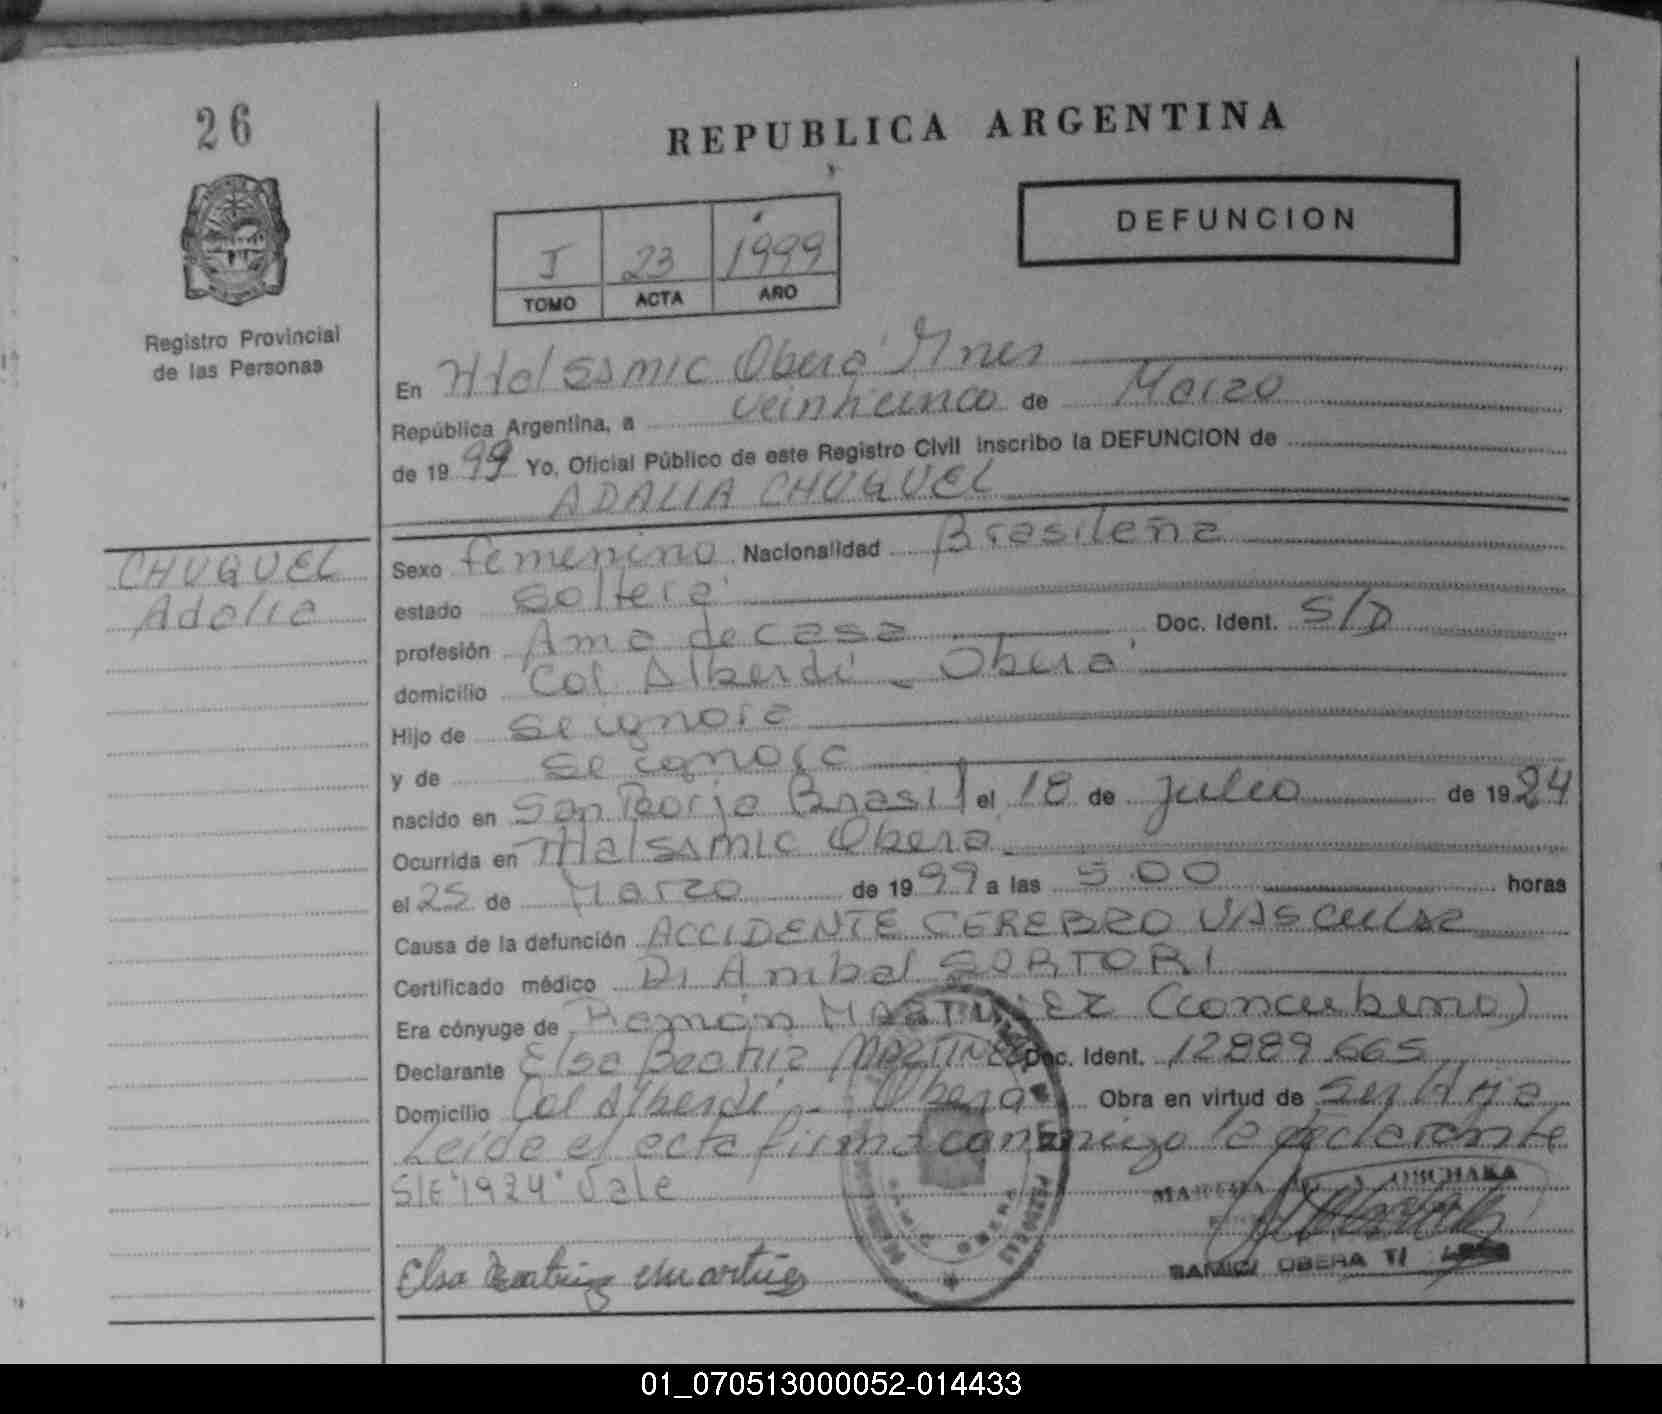 26
REPUBLICA ARGENTINA
DEFUNCION
I 23 1999
TOMO ACTA AÑO
Registro Provincial
de las Personas
En Htal SAMIC Oberá Mnes
República Argentina, a veinticinco de Marzo
de 1999 Yo, Oficial Público de este Registro Civil inscribo la DEFUNCION de
ADALIA CHUQUEL
CHUQUEL
Adalia
Sexo femenino Nacionalidad Brasileña
estado soltera
profesión Ama de casa Doc. Ident. S/D
domicilio Col. Alberdi - Oberá
Hijo de se ignora
y de se ignora
nacido en San Borja Brasil el 18 de Julio de 1924
Ocurrida en Htal SAMIC Oberá
el 25 de Marzo de 1999 a las 5.00 horas
Causa de la defunción ACCIDENTE CEREBRO VASCULAR
Certificado médico Dr Anibal SARTORI
Era cónyuge de Ramón MARTINEZ (concubino)
Declarante Elsa Beatriz MARTINEZ Doc. Ident. 12889.665
Domicilio Col Alberdi - Oberá Obra en virtud de ser hija
Leída el acta firma conmigo la declarante
S/E "1924" Vale
Elsa Beatriz Martinez
OBERA
01_070513000052-014433